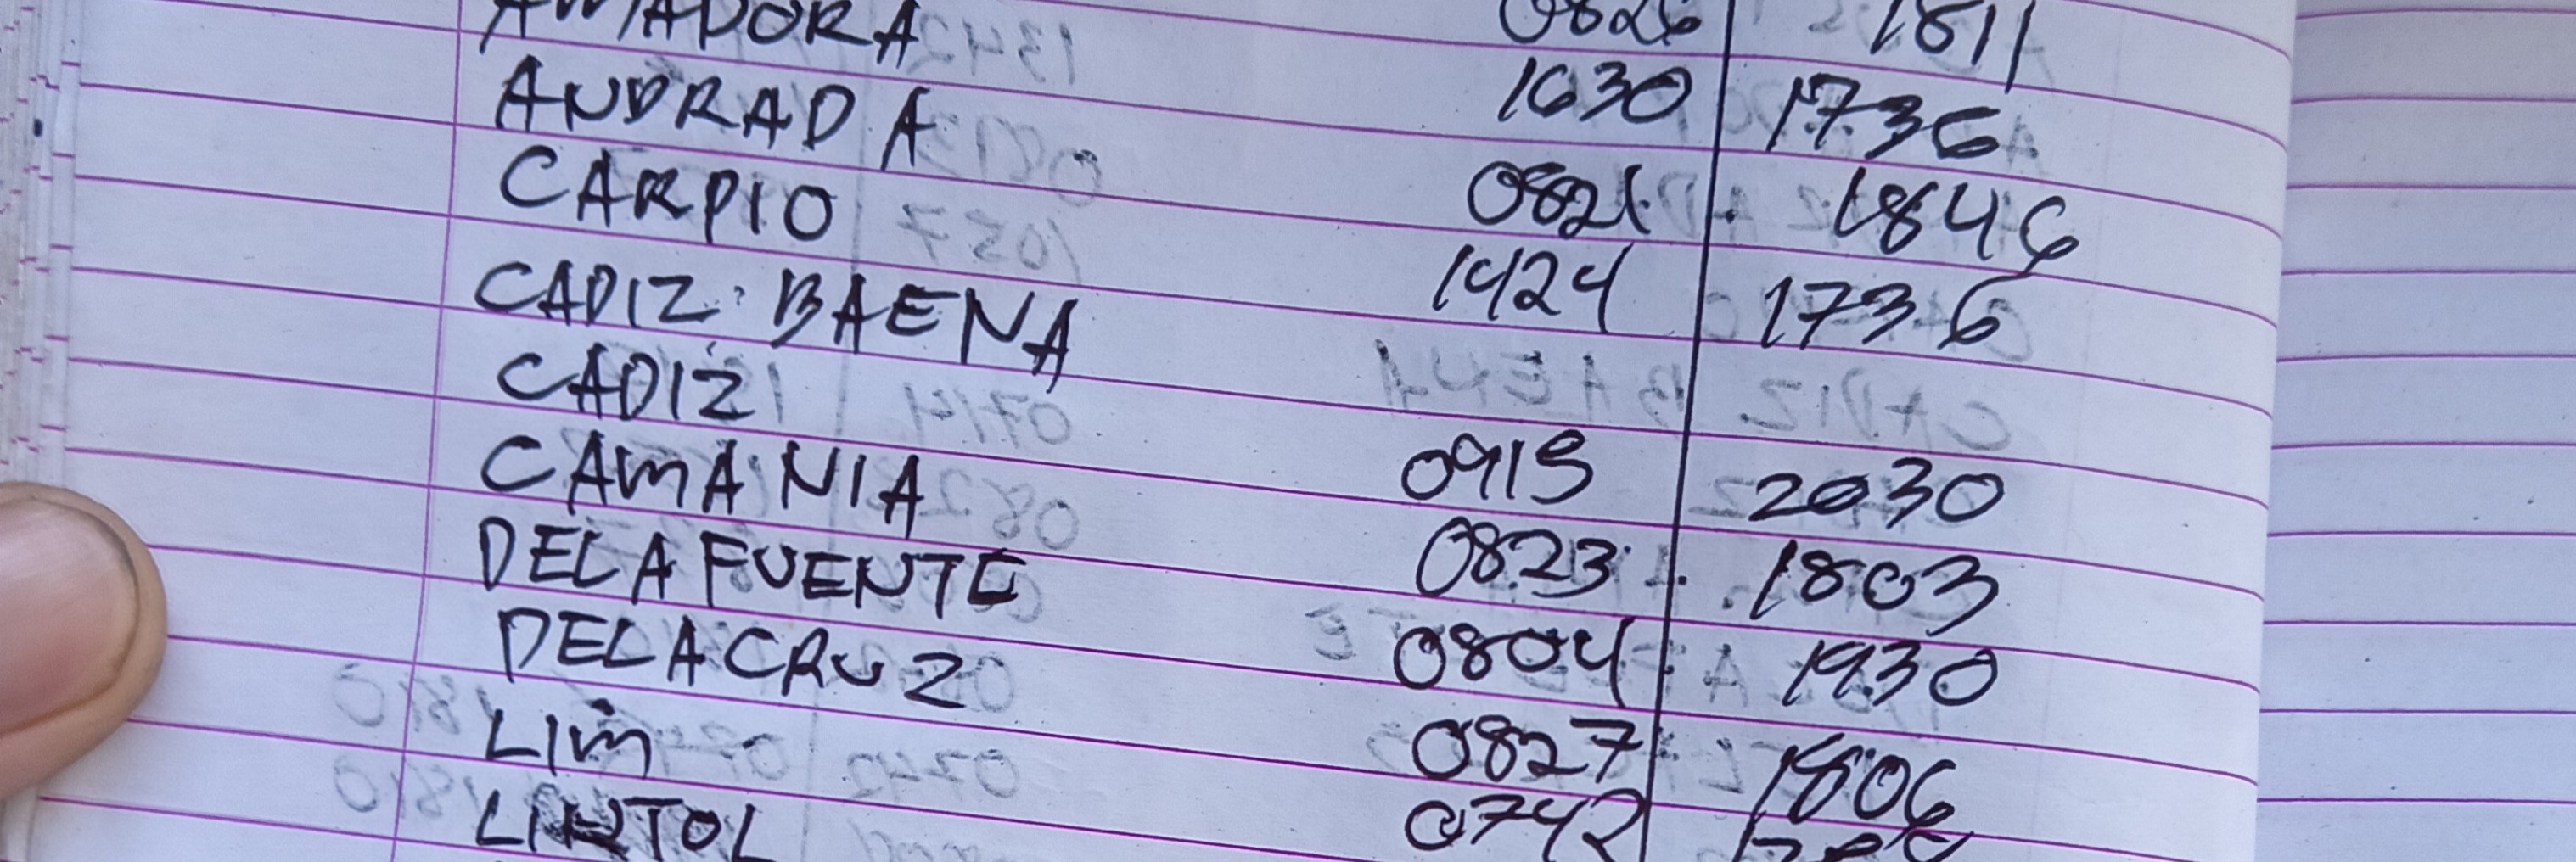 AMADORA 0826 1811
ANDRADA 1630 1736
CARPIO 0821 1846
CADIZ BAENA 1424 1736
CADIZ
CAMANIA 0915 2030
DELA FUENTE 0823 1803
DELA CRUZ 0804 1930
LIM 0827 1806
LINTOL 0742